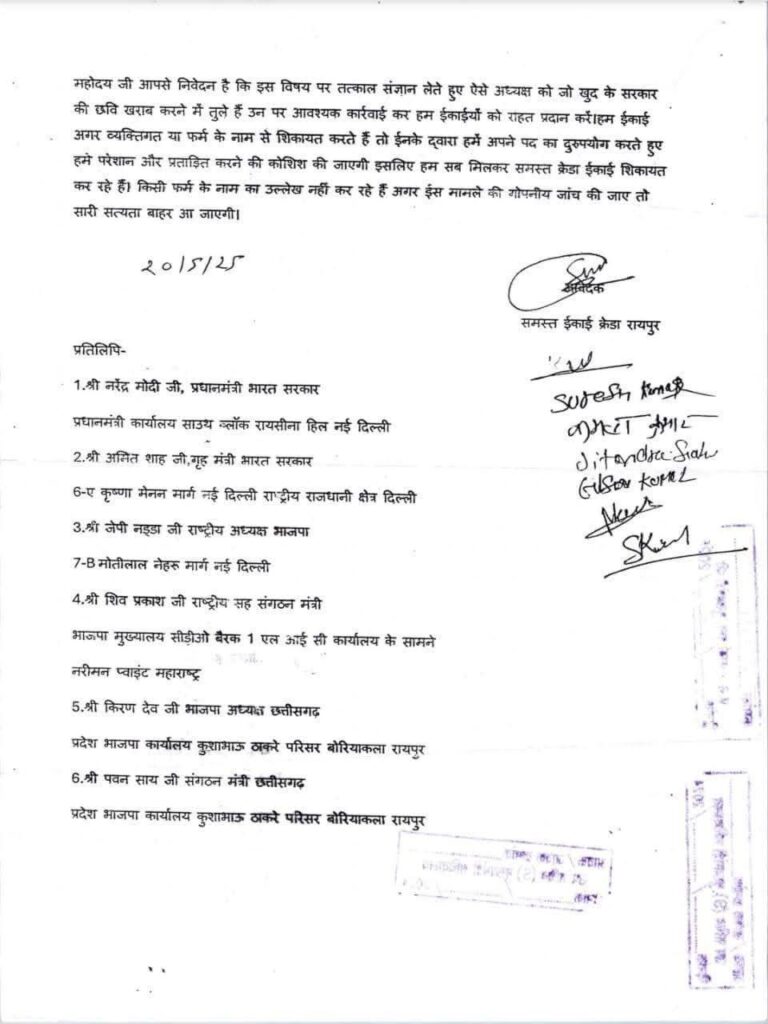 महोदय जी आपसे निवेदन है कि इस विषय पर तत्काल संज्ञान लेते हुए ऐसे अध्यक्ष को जो खुद के सरकार
की छवि खराब करने में तुले हैं उन पर आवश्यक कार्रवाई कर हम ईकाईयों को राहत प्रदान करें।हम ईकाई
अगर व्यक्तिगत या फर्म के नाम से शिकायत करते हैं तो ईनके द्वारा हमें अपने पद का दुरुपयोग करते हुए
हमे परेशान और प्रताड़ित करने की कोशिश की जाएगी इसलिए हम सब मिलकर समस्त क्रेडा ईकाई शिकायत
कर रहे हैं। किसी फर्म के नाम का उल्लेख नहीं कर रहे हैं अगर ईस मामले की गोपनीय जांच की जाए तो
सारी सत्यता बाहर आ जाएगी।
20/5/25
आवेदक
समस्त ईकाई क्रेडा रायपुर
प्रतिलिपि-
1.श्री नरेंद्र मोदी जी, प्रधानमंत्री भारत सरकार
Suresh Kumar
प्रधानमंत्री कार्यालय साउथ ब्लॉक रायसीना हिल नई दिल्ली
2.श्री अमित शाह जी,गृह मंत्री भारत सरकार
Jitendra
6-ए कृष्णा मेनन मार्ग नई दिल्ली राष्ट्रीय राजधानी क्षेत्र दिल्ली
3.श्री जेपी नड्डा जी राष्ट्रीय अध्यक्ष भाजपा
7-B मोतीलाल नेहरू मार्ग नई दिल्ली
4.श्री शिव प्रकाश जी राष्ट्रीय सह संगठन मंत्री
भाजपा मुख्यालय सीडीओ बैरक 1 एल आई सी कार्यालय के सामने
नरीमन प्वाइंट महाराष्ट्र
5.श्री किरण देव जी भाजपा अध्यक्ष छत्तीसगढ़
प्रदेश भाजपा कार्यालय कुशाभाऊ ठाकरे परिसर बोरियाकला रायपुर
6.श्री पवन साय जी संगठन मंत्री छत्तीसगढ़
प्रदेश भाजपा कार्यालय कुशाभाऊ ठाकरे परिसर बोरियाकला रायपुर